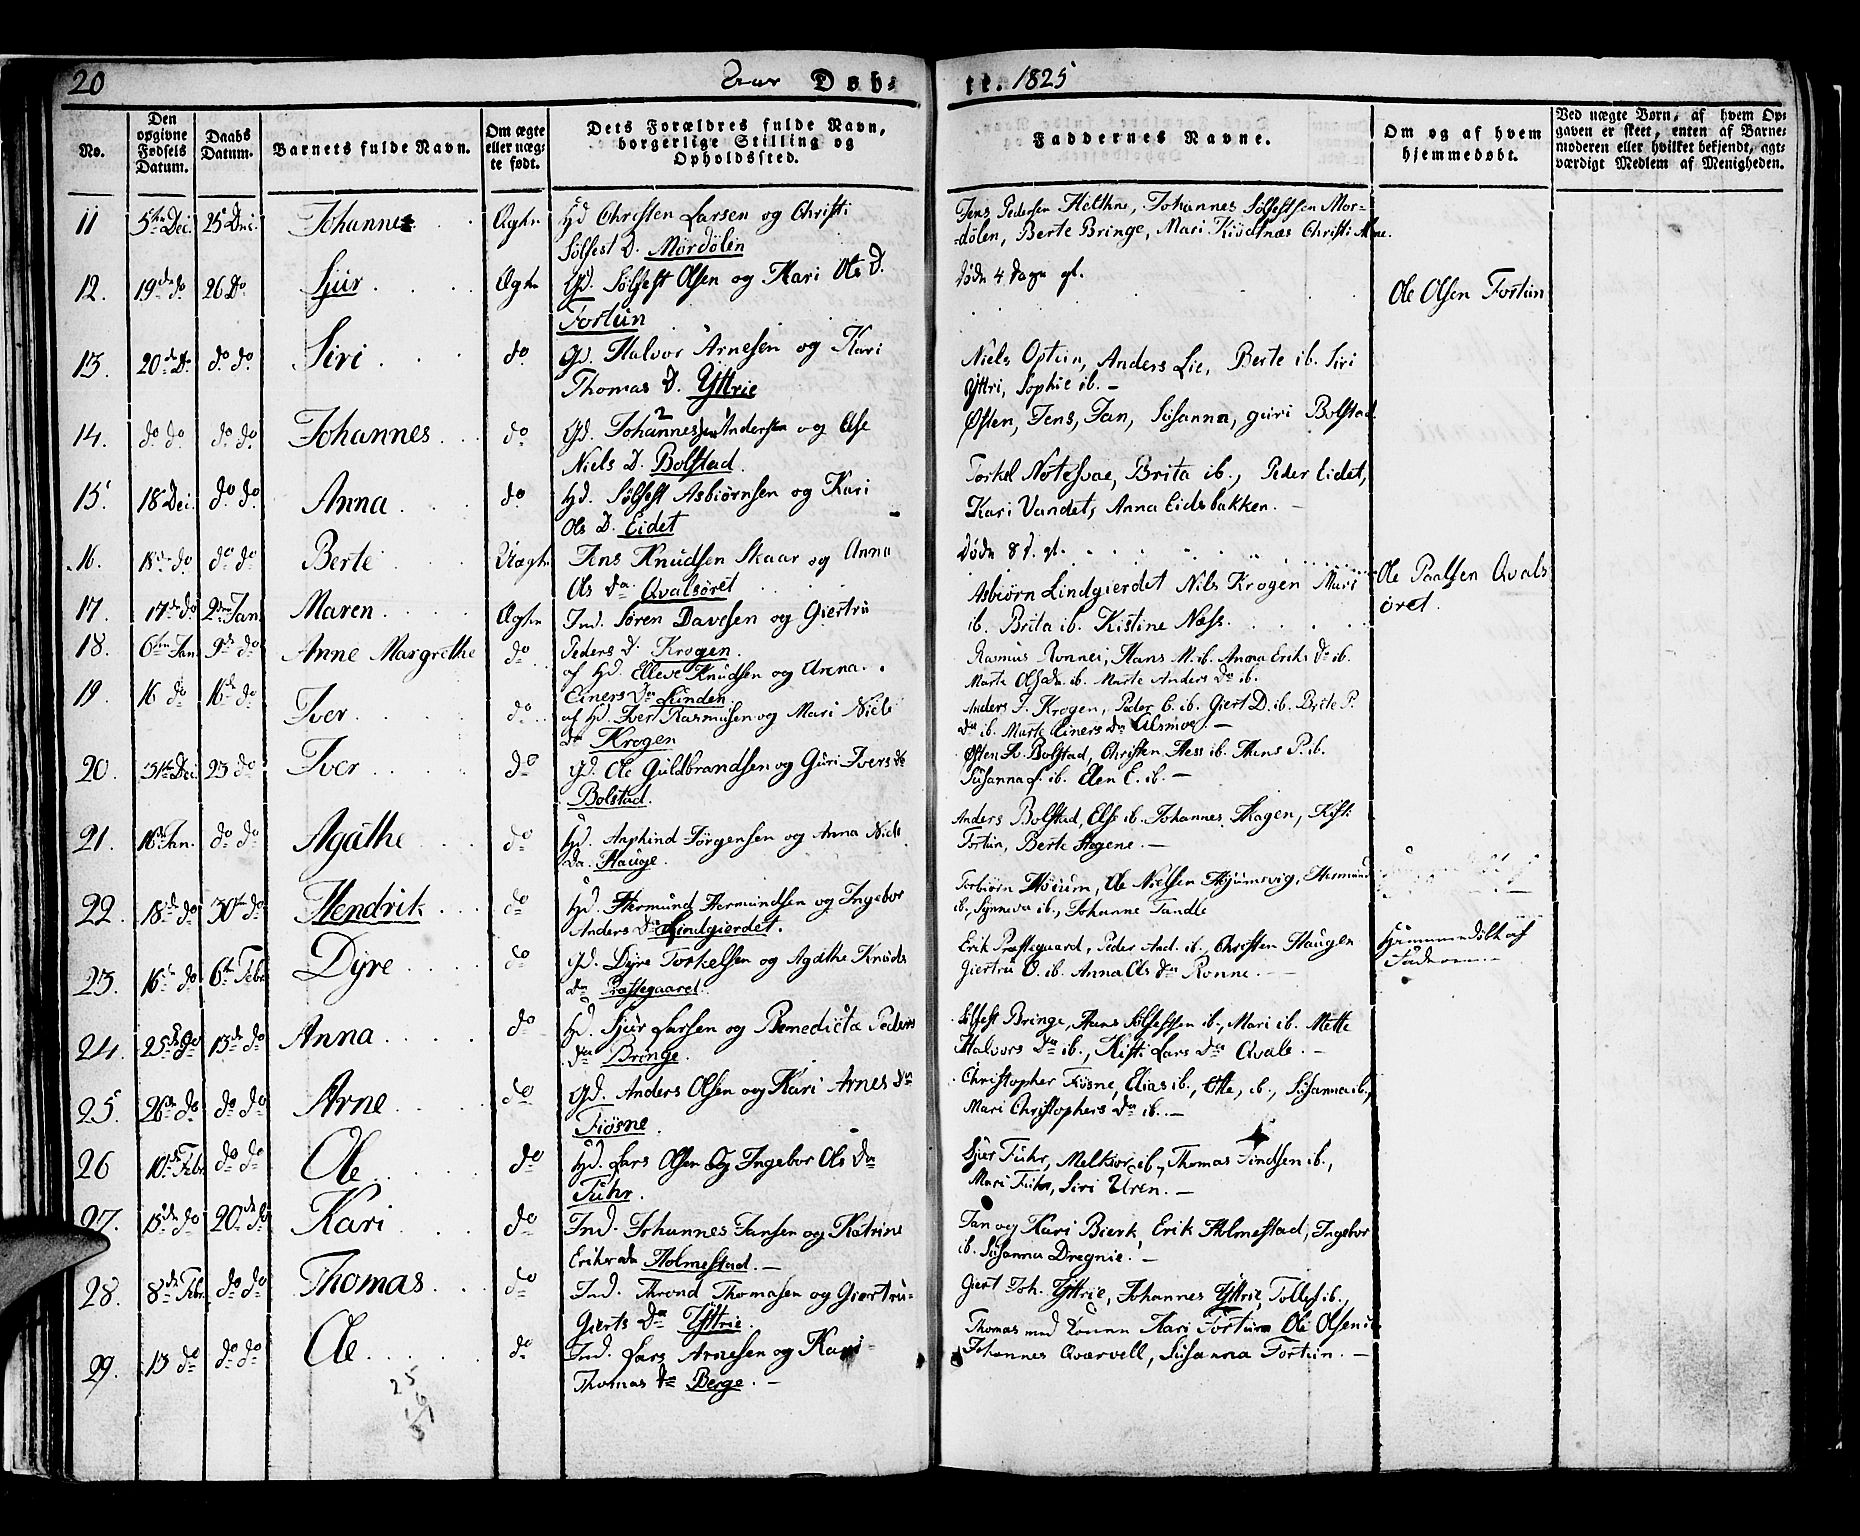 20
Aar Døb-
te. 1825
No.
Den opgivne Fødsels Datum.
Daabs Datum.
Barnets fulde Navn.
Om ægte eller uæg-te født.
Dets Forældres fulde Navn, borgerlige Stilling og Opholdssted.
Faddernes Navne.
Om og af hvem hjemmedøbt.
Ved uægte Børn, af hvem Op-gaven er skeet, enten af Barne-moderen eller hvilket bekjendt, agt-værdigt Medlem af Menigheden.
11 5te Dec. 25 Dec. Johannes Ægte Hd Christen Larsen og Christi
Sølfest D. Mørdølen
Jens Pedersen, Johannes Sølfestsen Mør-
dølen, Berte Bringe, Mari Christi
12. 19de do 26 Do Sjur Ægte Gd. Sølfest Olsen og Kari Ols D.
Fortun
Døde 4 Dage gl.
Ole Olsen Fortun
13. 20de D. do do Siri do Gd. Halvor Arnesen og Kari
Thomas D. Yttrie
Niels Optun, Anders Lie, Berte ib. Siri
Yttri, Sophie ib. -
14. do do do do Johannes do Gd. Johannes Andersen og Else
Niels D. Bolstad.
Østen, Jens, Jan, Susanna, Guri Bolstad
15. 18 Dec. do do Anna do Hd. Sølfest Asbiørnsen og Kari
Ols D. Eidet
Torkel Brita ib., Peder Eidet,
Kari Vandet, Anna Eidsbakken.
16. 18de do do do Berte Uægte Jens Knudsen Skaar og Anna
Ols da Qvalsøret
Døde 8 d. gl.
Ole Paalsen Qvals
øret.
17. 17de do 2den Jan Maren Ægte Ind. Søren Davesen og Giertru
Peders D. Krogen.
Asbiørn Lindgierdet Nils Krogen Mari
ib. Brita ib. Kistine Næss.
18. 6te Jan 9de do Anne Margrethe do af Hd. Elleve Knudsen og Anna
Einers Da Linden
Rasmus Ronnei, Hans M. ib. Anna Eriks Da ib.
Marte Ols da ib. Marte Anders Da ib.
19 16 do 16de do Iver do af Hd. Iver Rasmusen og Mari Niels
da Krogen
Anders J. Krogen, Peder ib. Giert D. ib. Brite P.
da ib. Marte Einers da Alsmoe. -
20. Dec. 23 do Iver do Gd. Ole Guldbrandsen og Guri Ivers da
Bolstad.
Østen Bolstad, Christen ib. Hans P. ib.
Susanna ib. Elen E. ib. -
21. 16 Jan. do do Agathe do Hd. Jørgensen og Anna Niels
Da. Hauge.
Anders Bolstad, Else ib. Johannes Hagen, Kisti
Fortun, Berte Hegene. -
22. 18de do 30te do Hendrik do Hd. Hermund Hermundsen og Ingebor
Anders Da Lindgierdet.
Torbiørn Moium, Ole Nielsen
ib., Synneva ib., Johanne Tandle
23. 16de do 6te Febr Dyre do Gd. Dyre Torkelsen og Agathe Knuds
da Præstegaard.
Erik Præstegaard, Peder And. ib., Christen Haugen
Giertru O. ib. Anna Ols da Ronne. -
Hjemmedøbt af
Faderen
24. 25de do 13de do Anna do Hd. Sjur Larsen og Benedicta Peders
da Bringe.
Sølfest Bringe, Hans Sølfestsen ib., Mari ib. Mette
Halvors Da ib., Kisti Lars da Qvale. -
25. 26de do do do Arne do Gd. Anders Olsen og Kari Arnes da
Fiøsne.
Christopher Fiøsne, Elias ib., Otte, ib., Susanna ib.,
Mari Christophers da ib. -
26 10de Febr do do Ole do Hd. Lars Olsen og Ingebor Ols Da
Fuhr.
Sjur Fuhr, Melkior ib., Thomas ib.,
Mari Fuhr, Siri Uren. -
27. 15de do 20de do Kari do Ind. Johannes Jansen og Katrine
Eriks da Holmestad. -
Jan og Kari Bierk, Erik Holmestad, Ingebor
ib. Susanna Dregnie. -
28. 8de Febr. do do Thomas do Ind. Thrond Thomasen og Giertru-
Gierts Da Yttrie.
Giert Joh. Yttrie, Johannes Yttrie, Tollef ib.,
29. 13 do do do Ole do Ind. Lars Arnesen og Kari
Thomas da Berge. -
Thomas med Kari Fortun Ole Olsen ib
Johannes Qværvell, Susanna Fortun. -
25